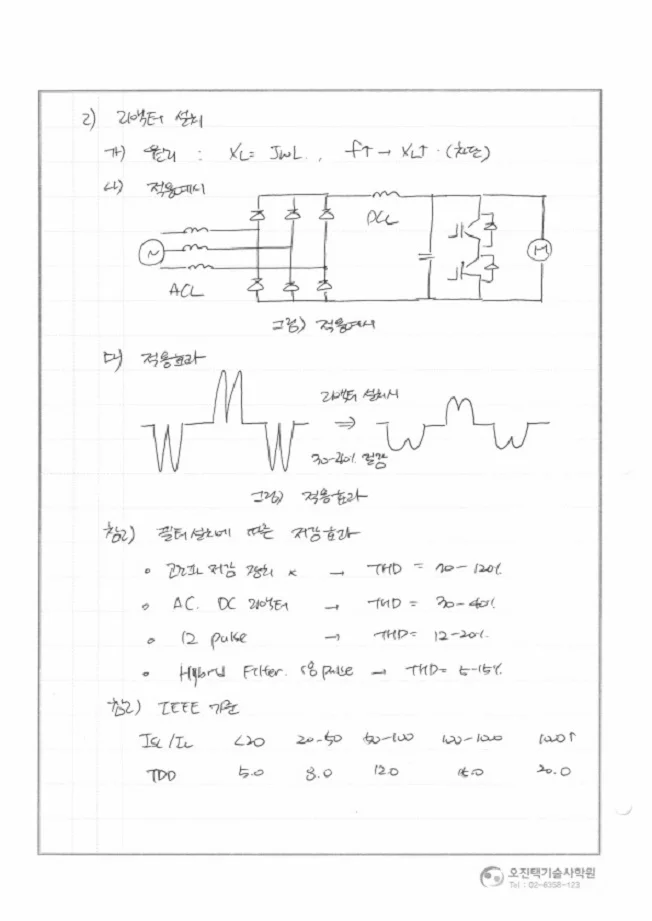 2) 리액터 설치
가) 원리 : XL = JωL , f↑ → XL↑ (차단)
나) 적용예시
DCL
N
M
ACL
그림) 적용예시
다) 적용효과
리액터 설치시
⇒
30-40% 절감
그림) 적용효과
참고) 필터설치에 따른 저감효과
o 고조파 저감 장치 x → THD = 70-120%
o AC. DC 리액터 → THD = 30-40%
o 12 pulse → THD = 12-20%
o Hybrid Filter. 18 pulse → THD = 5-15%
참고) IEEE 기준
Isc/IL <20 20-50 50-100 100-1000 1000↑
TDD 5.0 8.0 12.0 15.0 20.0
오진택기술사학원
Tel : 02-6358-123